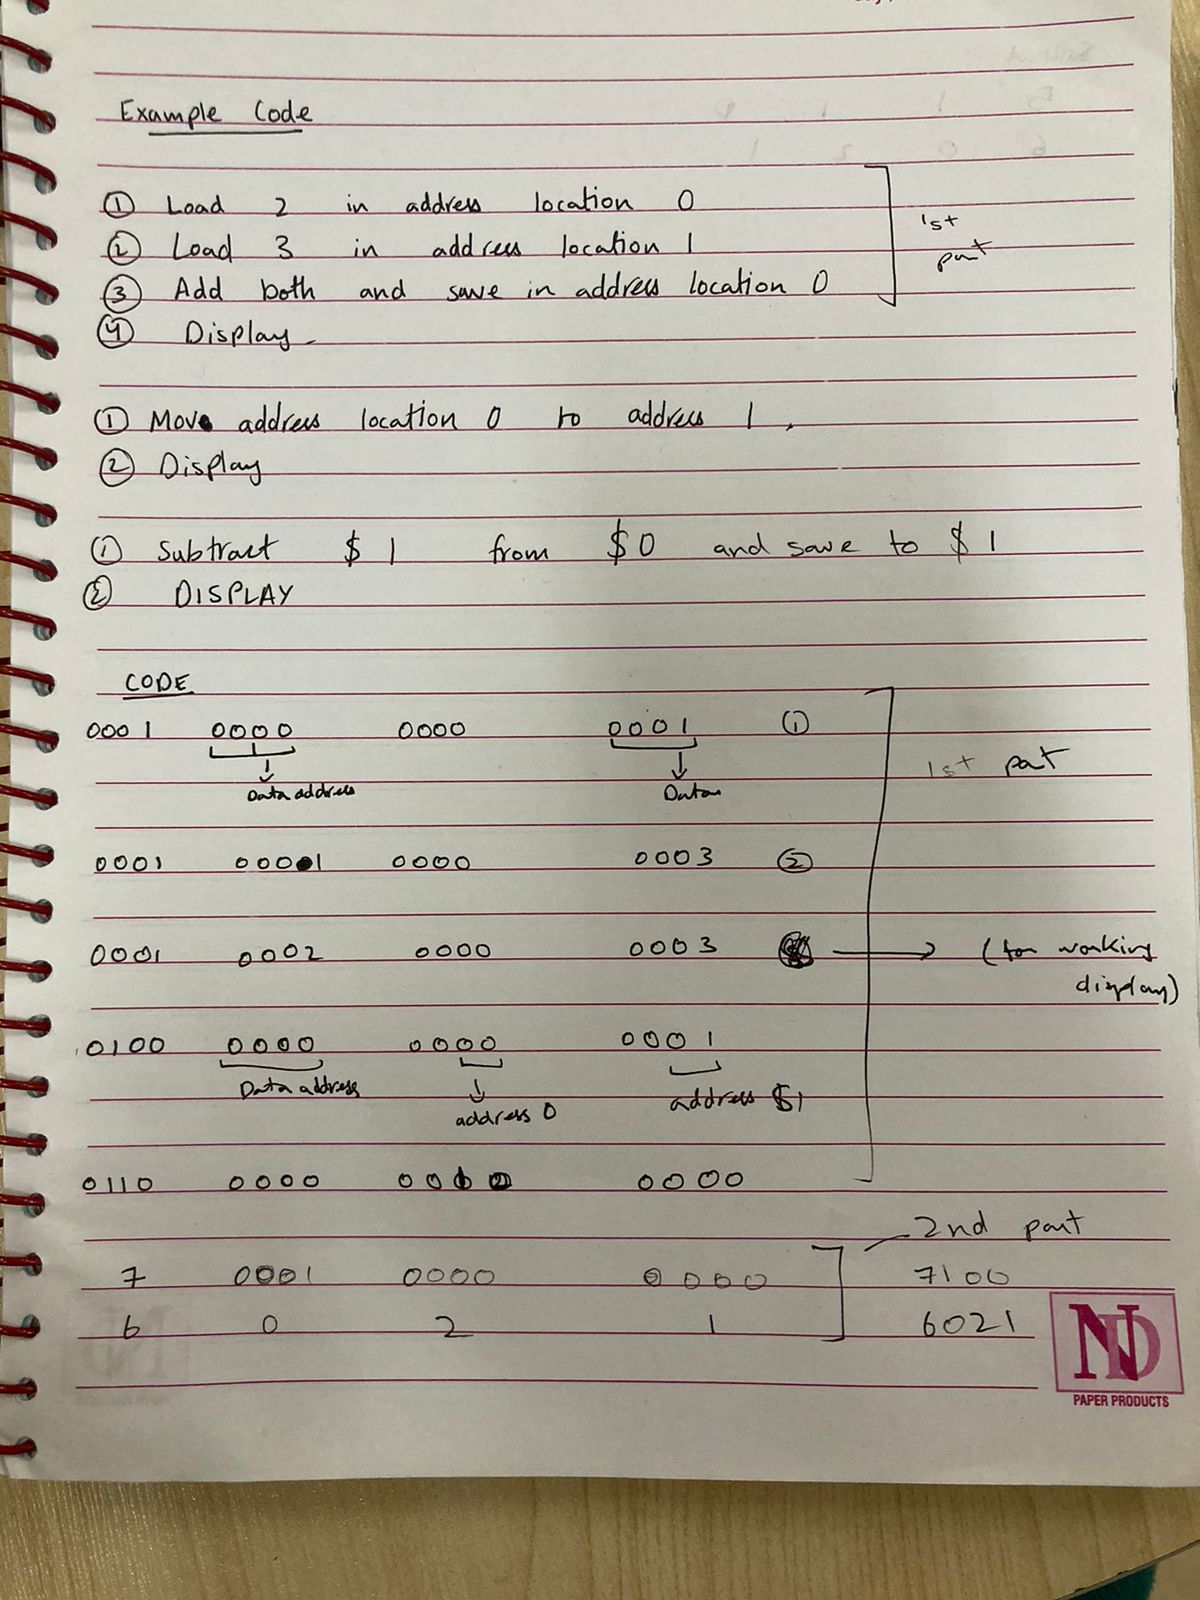 Example Code
① Load 2 in address location 0
② Load 3 in address location 1
1st part
③ Add both and save in address location 0
④ Display
① Move address location 0 to address 1.
② Display
① Subtract $1 from $0 and save to $1
② DISPLAY
CODE
0001 0000 0000 0001 ①
1st part
Data address Data
0001 0001 0000 0003 ②
0001 0002 0000 0003 → (for working display)
0100 0000 0000 0001
Data address address 0 address $1
0110 0000 0000
2nd part
7 0001 0000 0000 7100
6 0 2 1 6021
ND
PAPER PRODUCTS